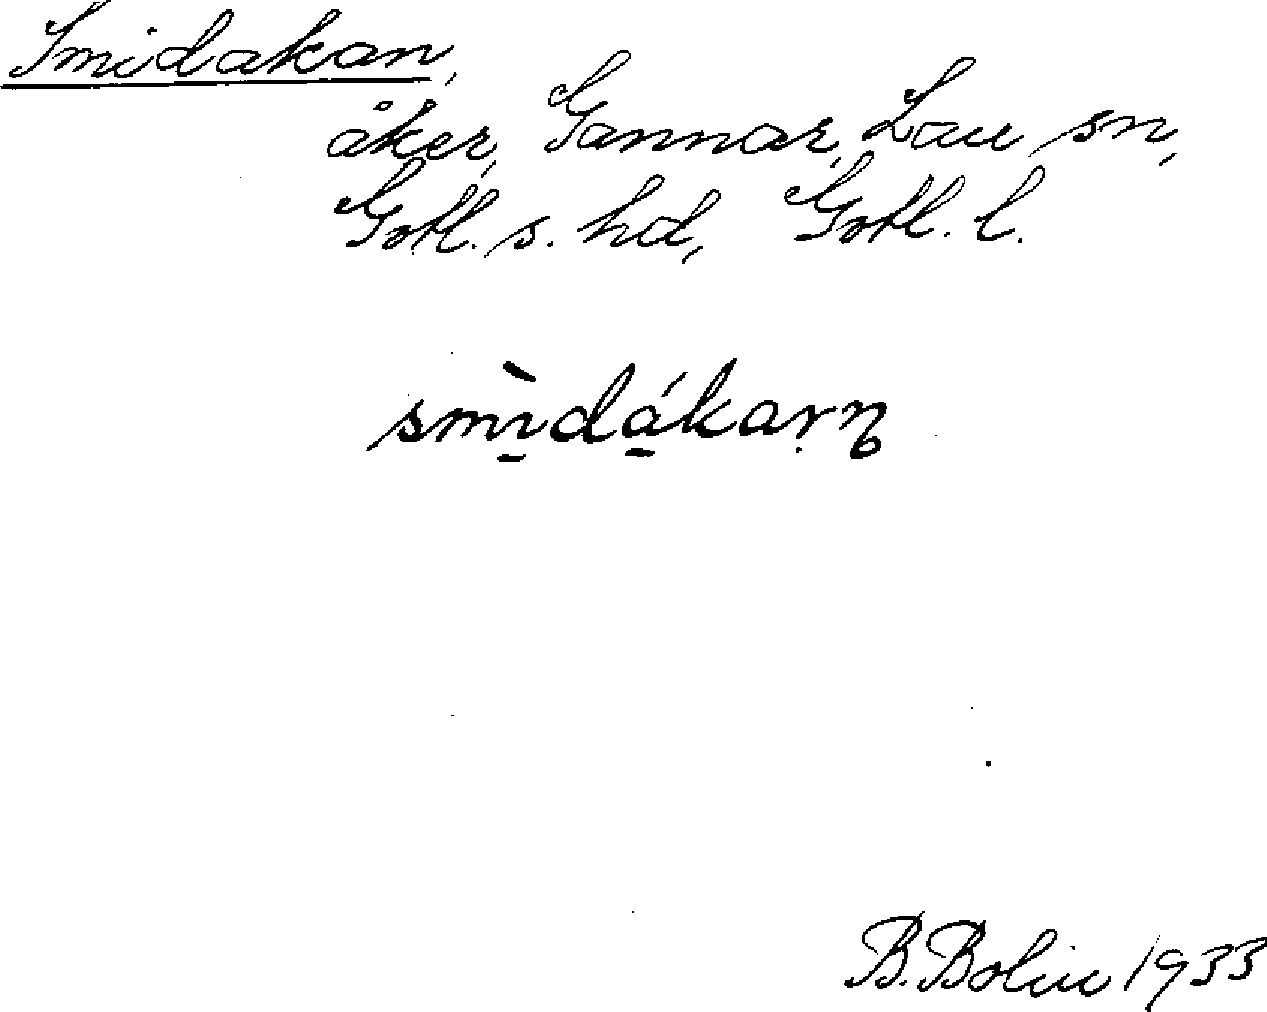 Smidakan,
åker, Gannar, Lau sn,
Gotl. s. hd, Gotl. l.
smì̱dá̱kaṛn̥
B. Bolin 1933